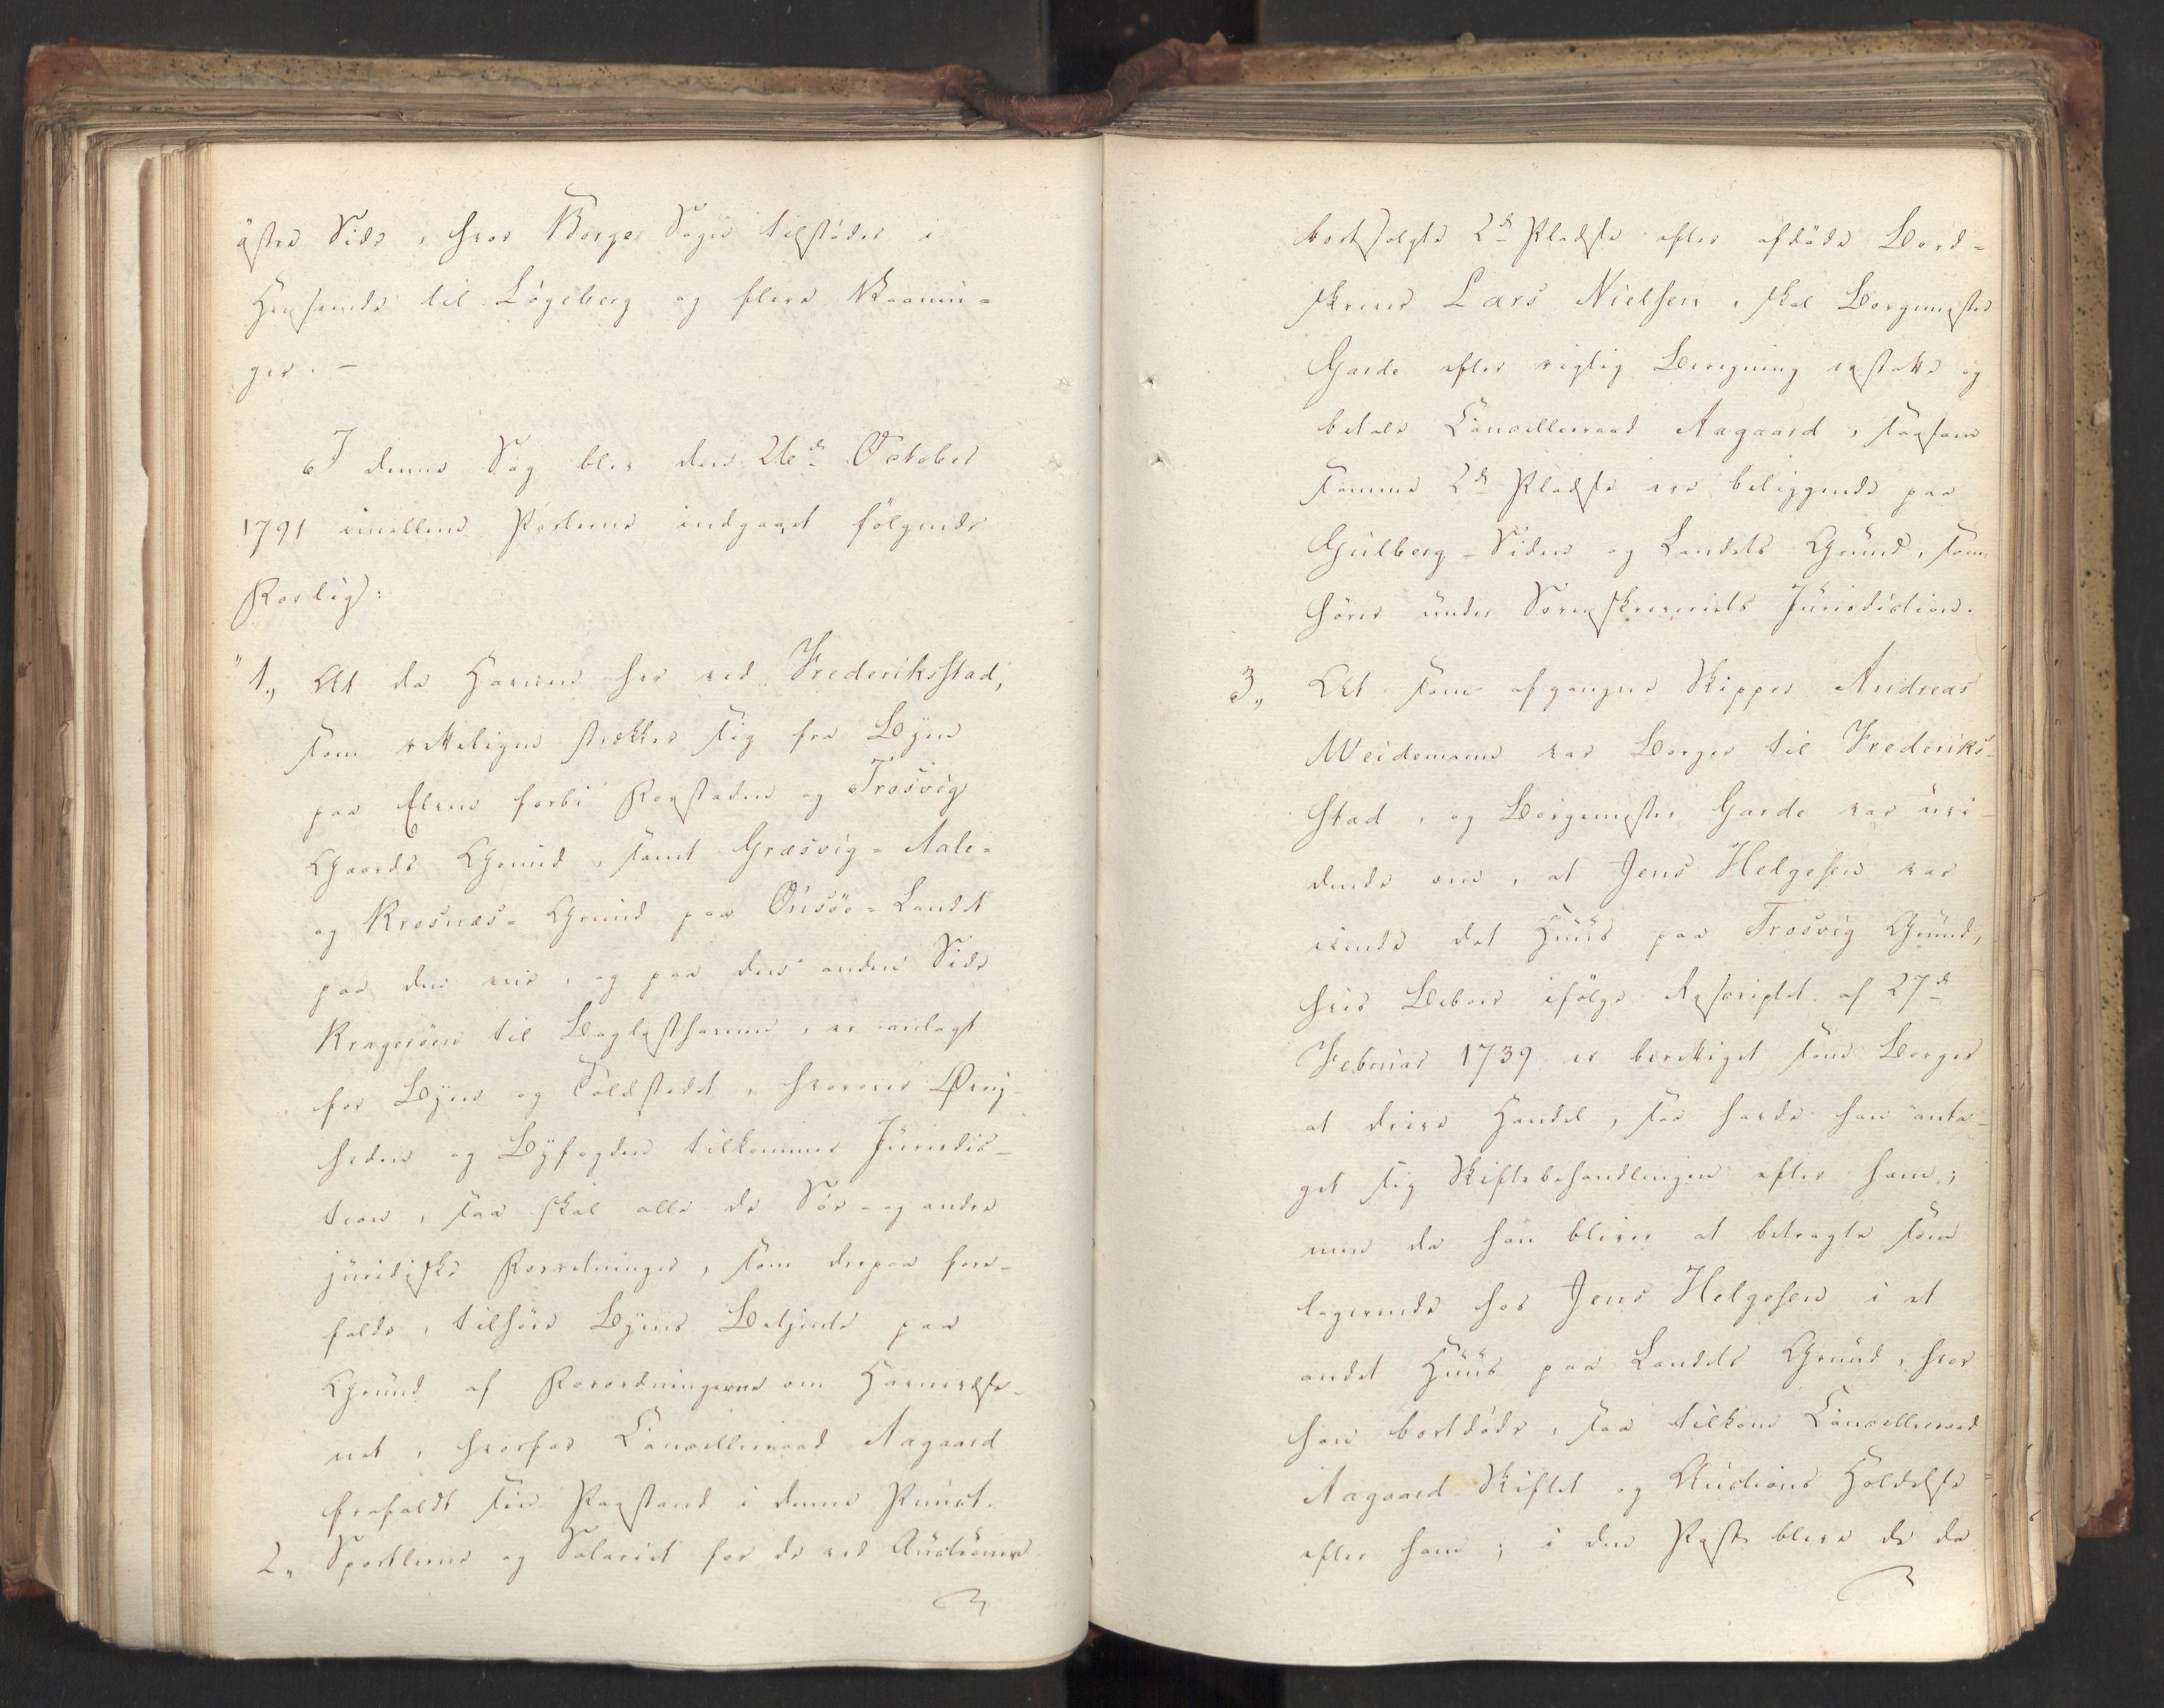 østre Side, hvor Borge Sogn tilstøder i
Henseende til Løgeberg og flere Vaanin-
ger. –
I denne Sag blev den 26de October
1791 imellem Parterne indgaaet følgende
Forlig:
"1., At da Havnen her ved Frederiksstad,
som rettelig strækker sig fra Byen
paa Elven forbi Forstaden og Trosvig
Gaards Grund, samt Græsvig- Aale-
og Krosnæs- Grund paa Onsöe-Landet
paa den ene, og paa den anden Side
Kragerøen til Baglasthavn, er anlagt
for Byen og Toldstedet, hvorover Øvrig-
heden og Byfogden tilkommer Jurisdic-
tion, saa skal alle de Søe- og andre
juridiske Forretninger, som derpaa fore-
falde, tilhøre Byens Betjente paa
Grund af Forordningerne om Havnevæse-
net, hvorfor Cancelliraad Aagaard
frafaldt sin Paastand i denne Punct.
2., Sportlerne og Salariet for de ved Auctioner
bortsolgte 2de Pladse efter afdøde Bord-
skriver Lars Nielsen, skal Borgemester
Garde efter rigtig Beregning erstatte og
betale Cancelliraad Aagaard, saasom
samme 2de Pladse ere beliggende paa
Gulberg-Siden og Landets Grund, som
hører under Sorenskriverens Jurisdiction.
3., At som afgangne Skipper Andreas
Weidemann var Borger til Frederiks-
stad, og Borgemester Garde var uvi-
dende om, at Jens Helgesen var
eiende det Huus paa Trosvig Grund,
hvis Beboer ifølge Rescriptet af 27de
Februar 1739 er berettiget som Borger
at drive Handel, saa havde han anta-
get sig Skiftebehandlingen efter ham;
men da han bliver at betragte som
logerende hos Jens Helgesen i et
andet Huus paa Landets Grund, hvor
han bortdøde, saa tilkom Cancelliraad
Aagaard Skiftet og Auctions Holdelse
efter ham; i den Post bleve de da